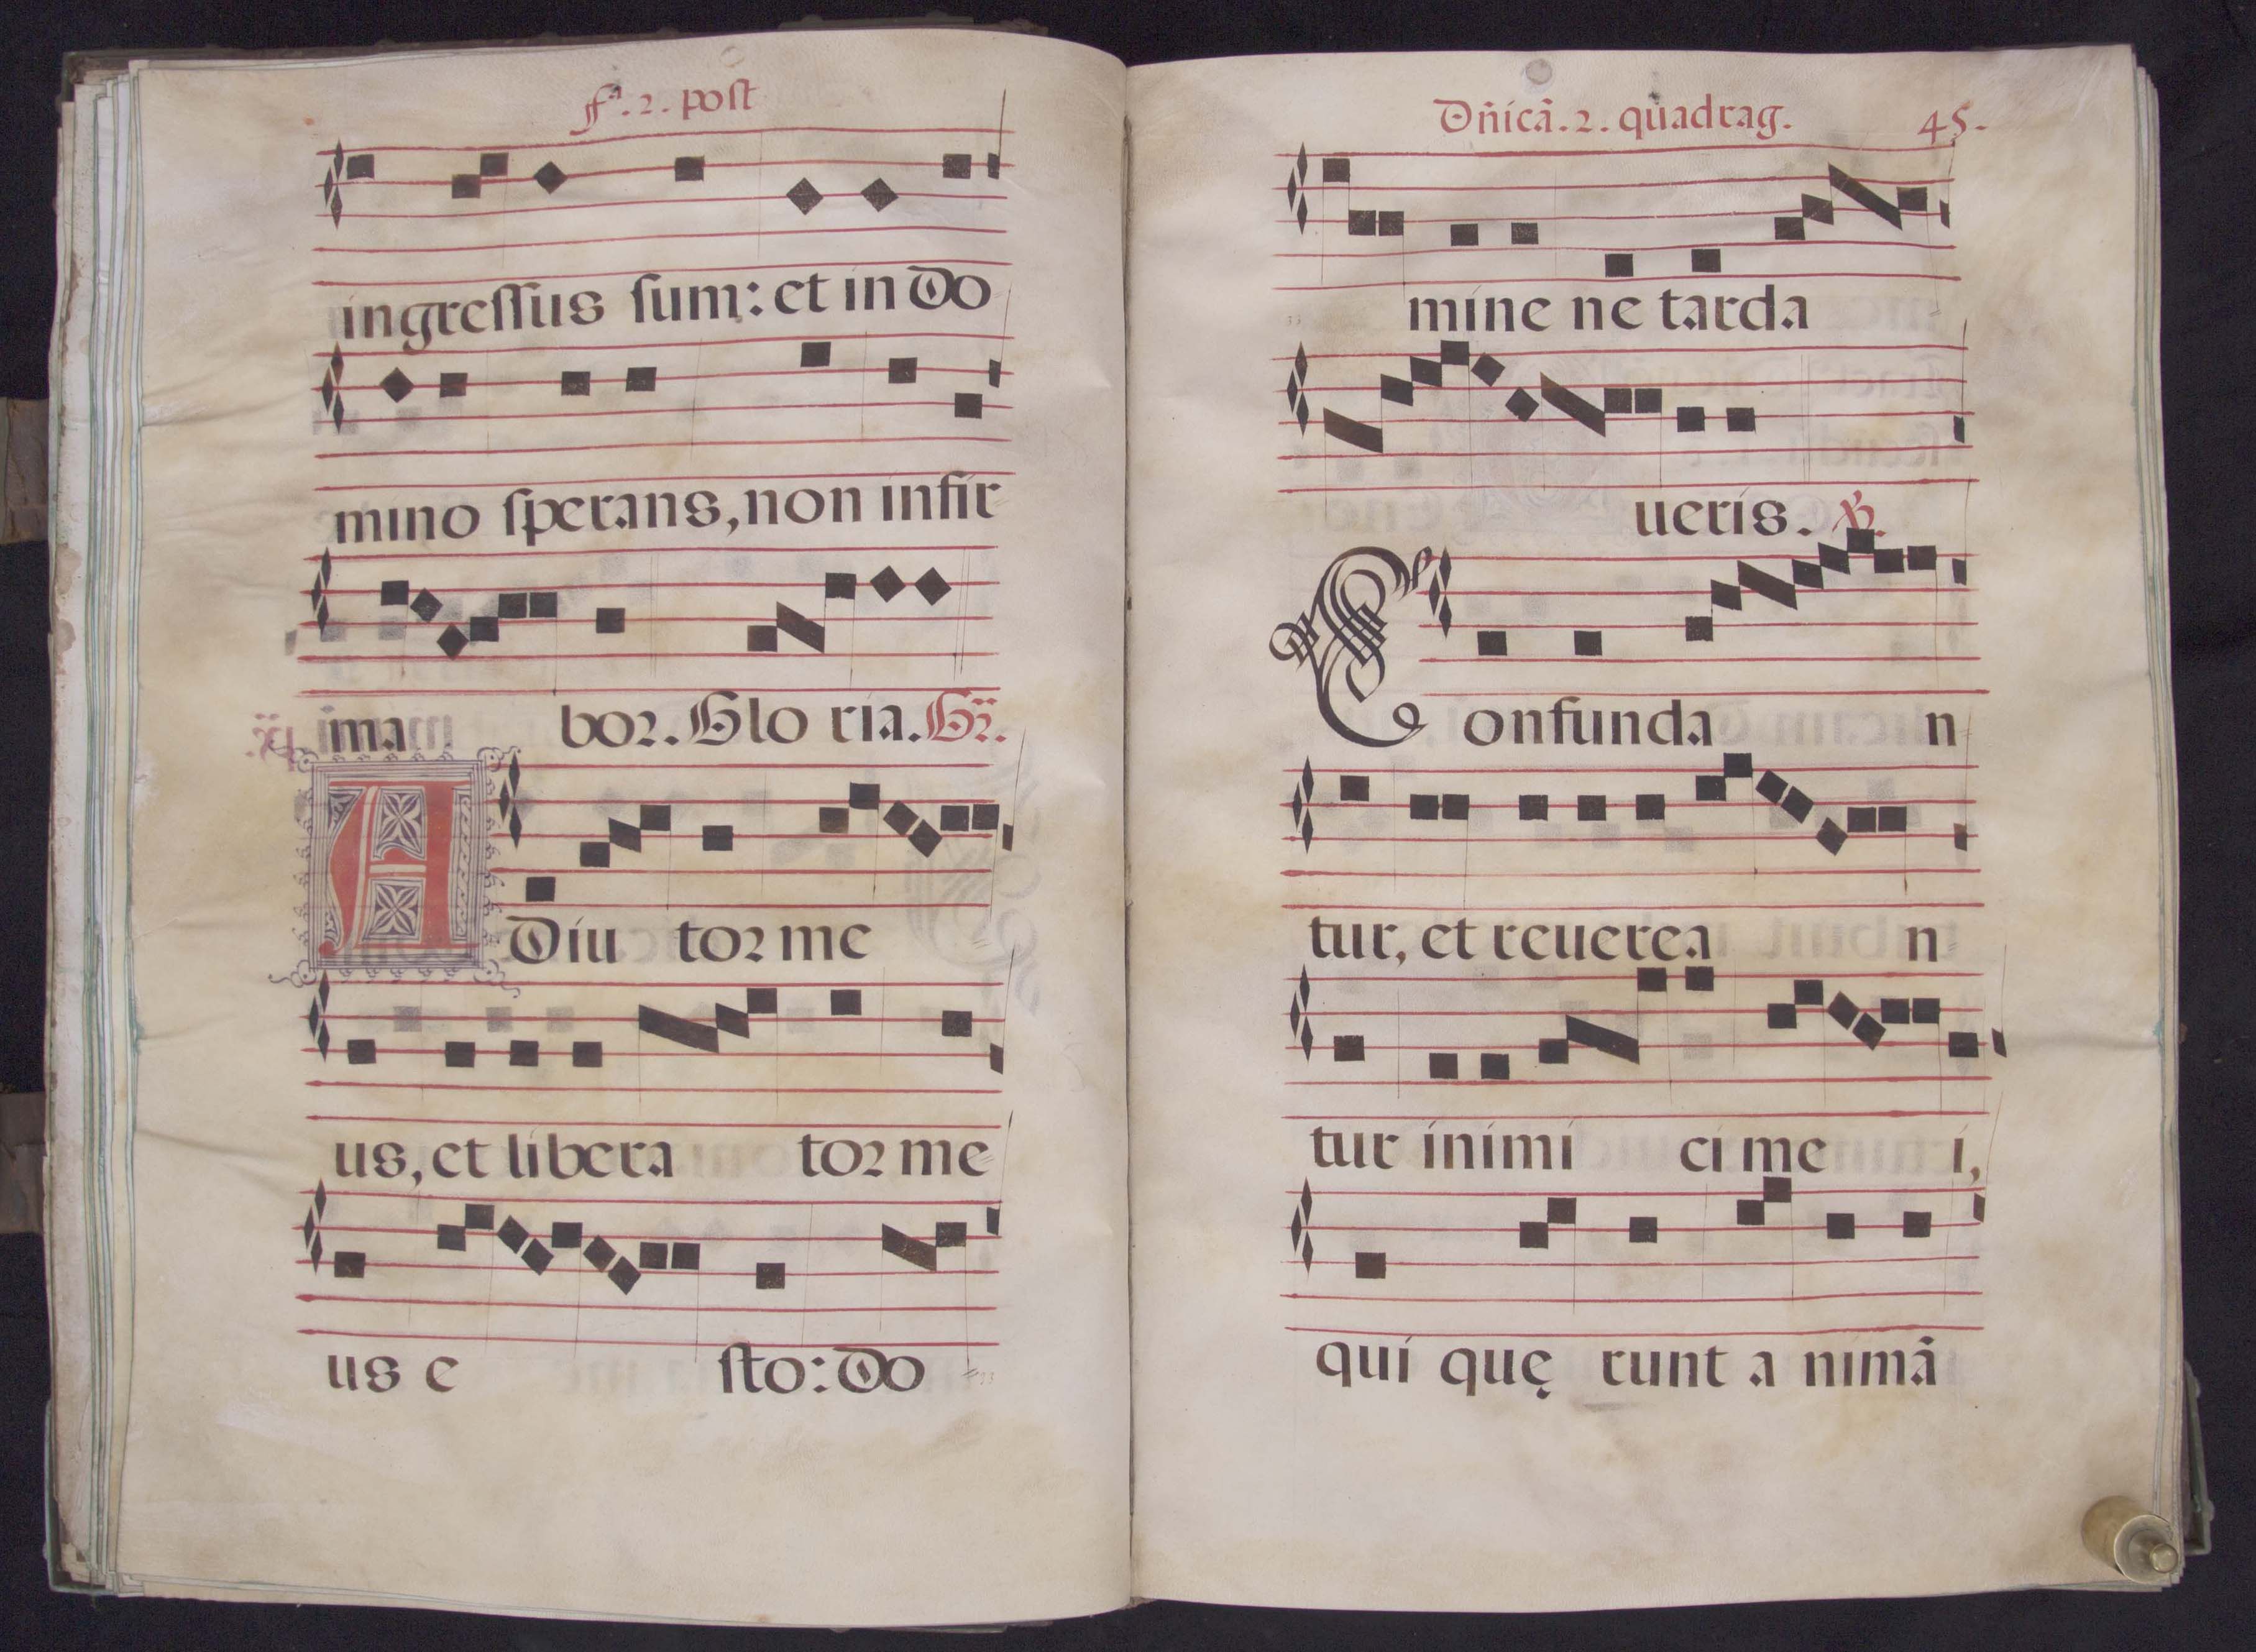 fª. 2. post
ingreſſus ſum: et in do
mino ſperans, non infir
ima bor. Glo ria. Gr̃.
A diu tor me
us, et libera tor me
us e ſto: do
Dñicã. 2. quadrag. 45.
mine ne tarda
ueris. ℣.
Confunda n
tur, et reuerea n
tur inimi ci me i,
qui quę runt a nimã